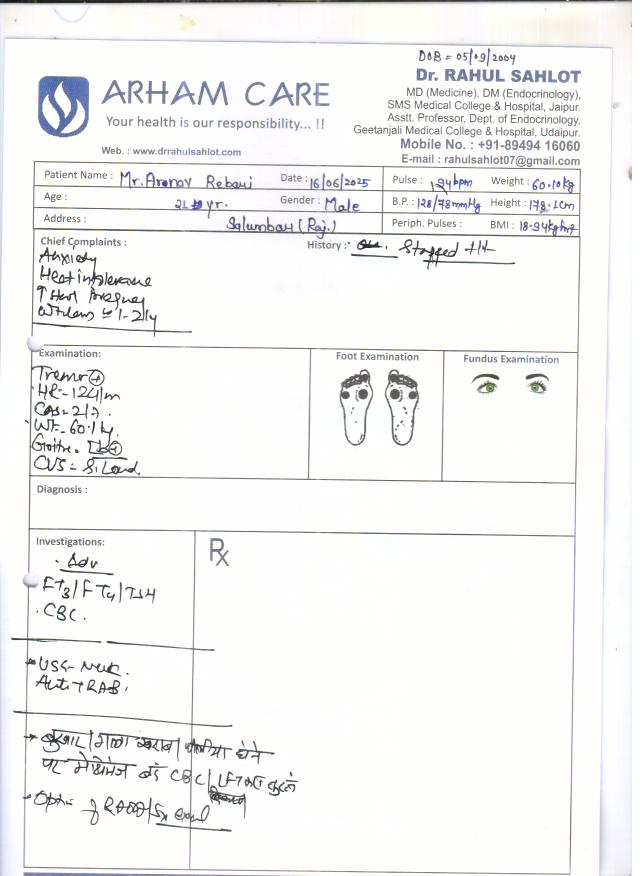 DOB = 05/09/2004
Dr. RAHUL SAHLOT
MD (Medicine), DM (Endocrinology),
SMS Medical College & Hospital, Jaipur.
Asstt. Professor, Dept. of Endocrinology,
Geetanjali Medical College & Hospital, Udaipur.
Mobile No. : +91-89494 16060
E-mail : rahulsahlot07@gmail.com
ARHAM CARE
Your health is our responsibility... !!
Web. : www.drrahulsahlot.com
Patient Name : Mr. Date : 16/06/2025 Pulse : 124bpm Weight : 60.10kg
Age : 21 yr. Gender : Male B.P. : 128/78mmHg Height : 178.1cm
Address : Salumbar (Raj.) Periph. Pulses : BMI : 18.94kg/m2
Chief Complaints : History : Stopped
Anxiety
Heat intolerance
↑ Stool frequency
Wt loss 1-2/y
Examination: Foot Examination Fundus Examination
Tremor +
HR- 124/m
CAS= 2/7.
Wt- 60.1kg.
Goitre +
CVS = S1 Loud
Diagnosis :
Investigations: Rx
Adv
FT3/FT4/TSH
CBC.
USG- Neck.
Anti TRAB.
पर CBC/LFT